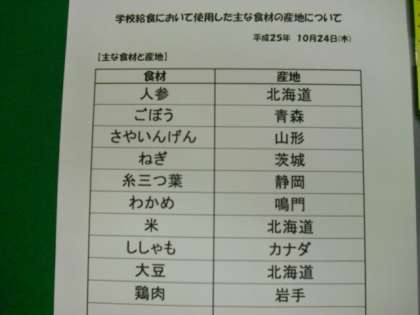 学校給食において使用した主な食材の産地について
平成25年 10月24日(木)
【主な食材と産地】
食材 産地
人参 北海道
ごぼう 青森
さやいんげん 山形
ねぎ 茨城
糸三つ葉 静岡
わかめ 鳴門
米 北海道
ししゃも カナダ
大豆 北海道
鶏肉 岩手